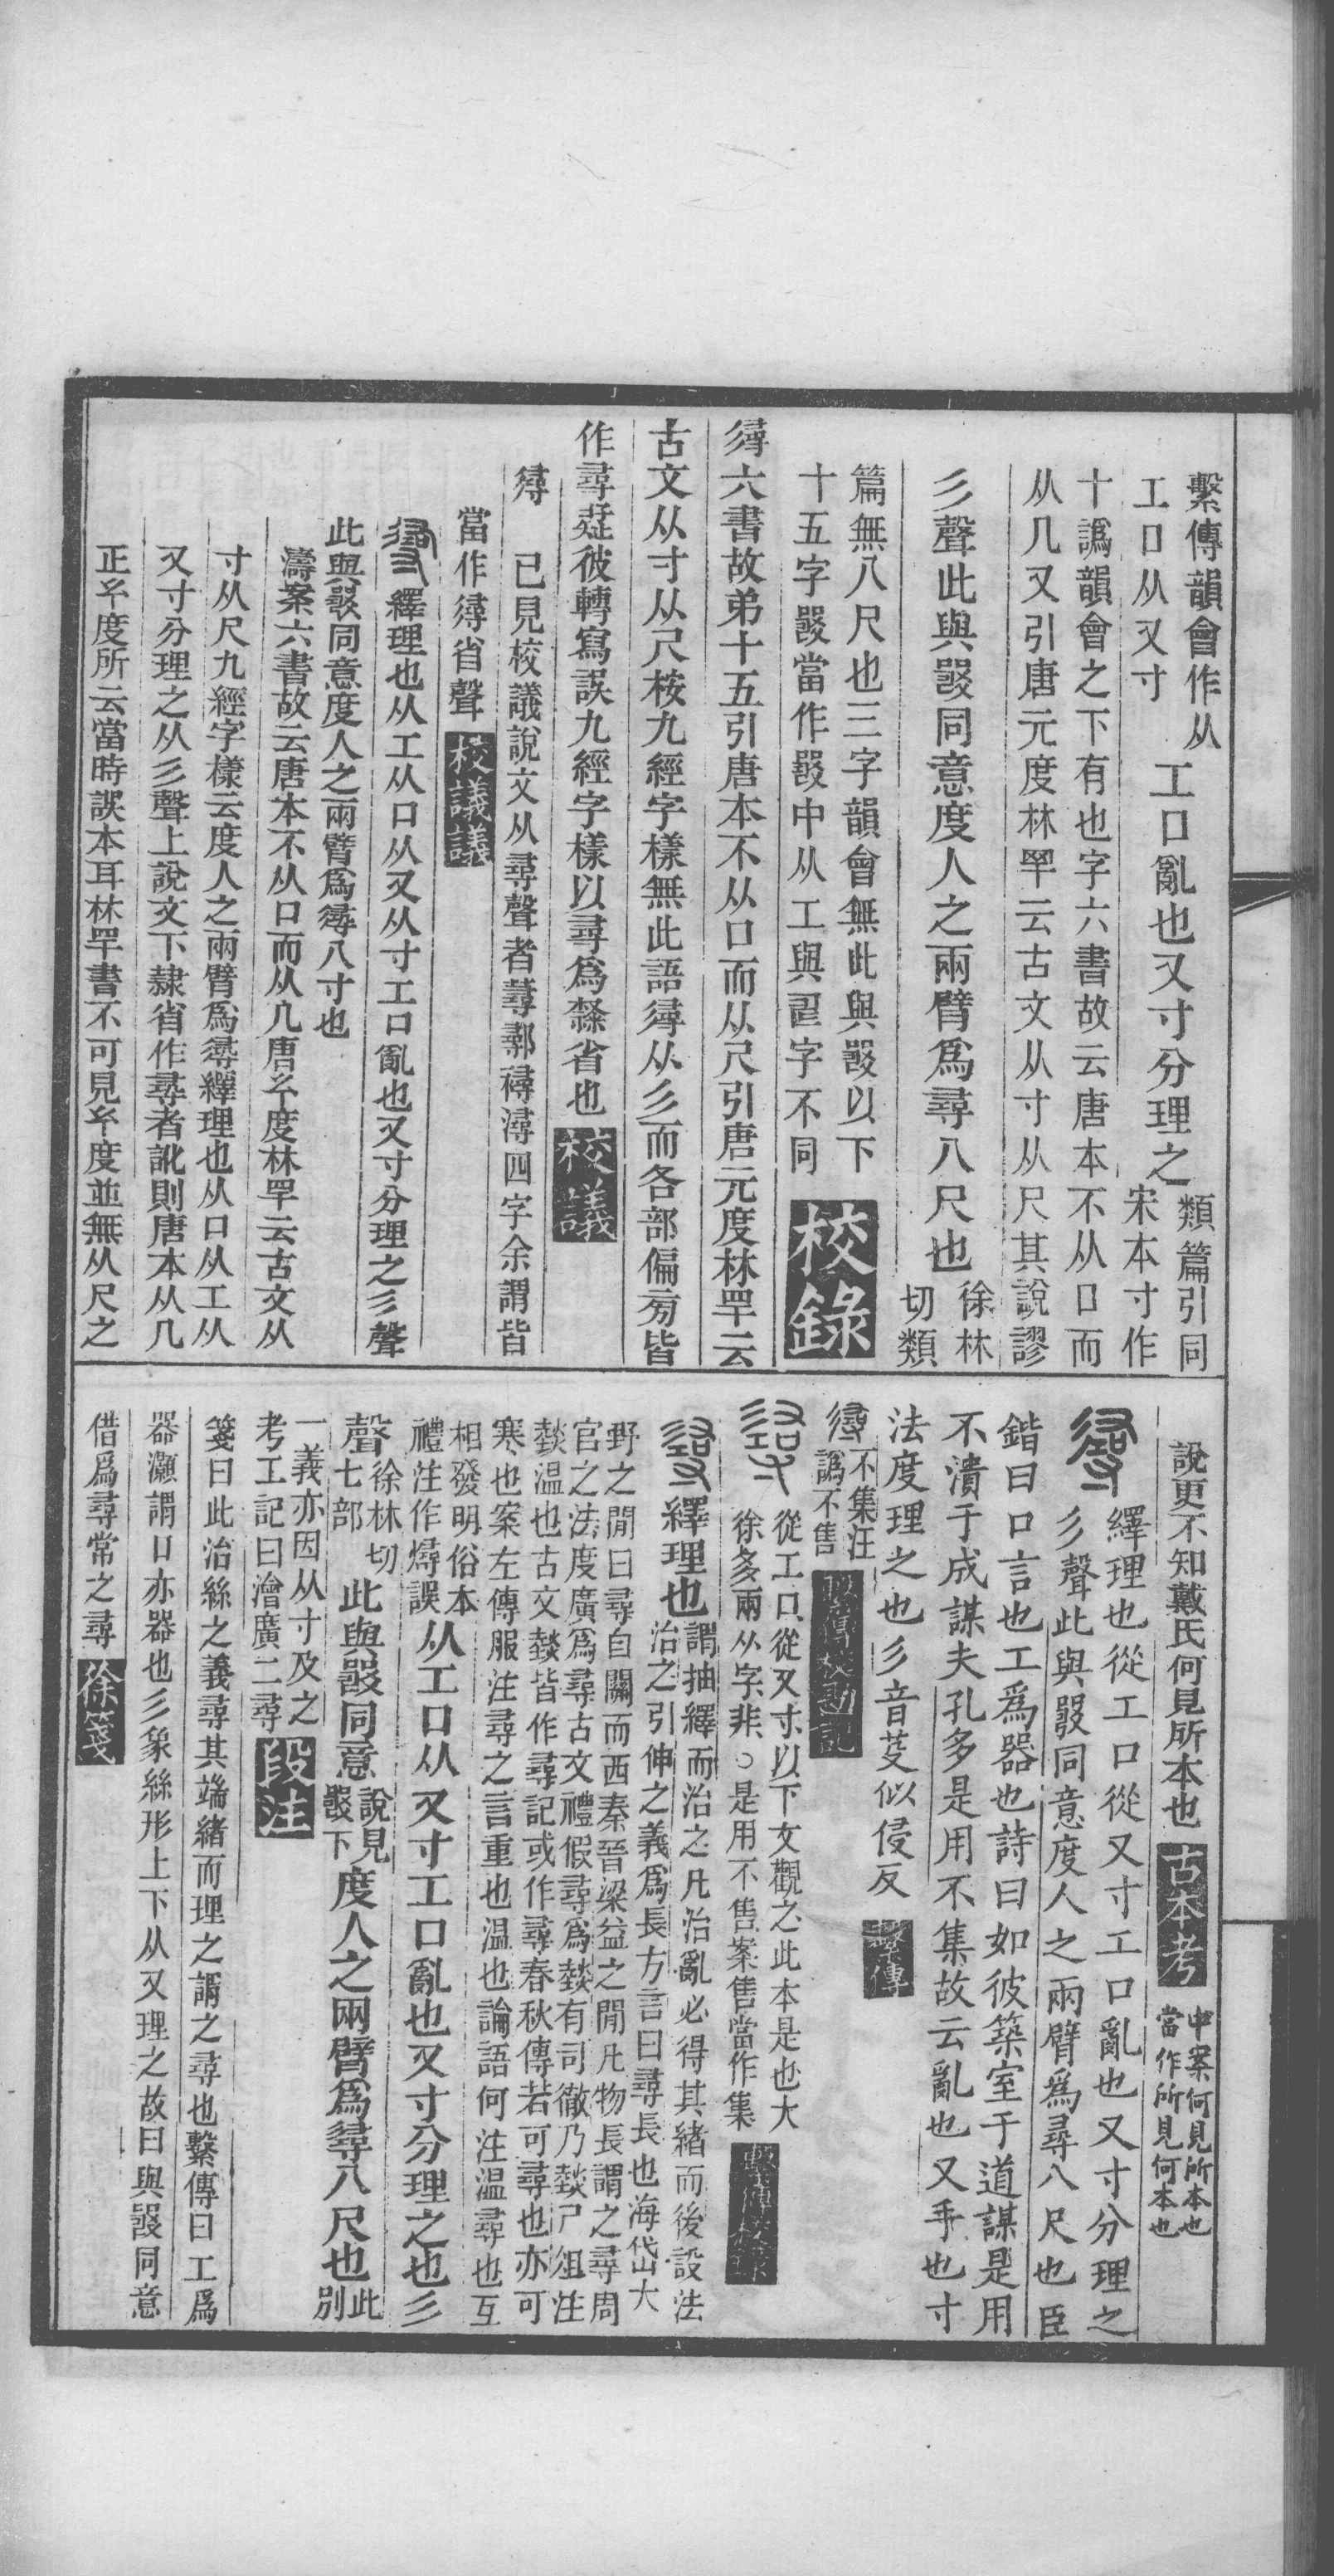 繫傳韻會作从
工口从又寸
工口亂也又寸分理之
類篇引同
宋本寸作
十譌韻會之下有也字六書故云唐本不从口而
从几又引唐元度林罕云古文从寸从尺其說謬
彡聲此與𤕦同意度人之兩臂爲尋八尺也
徐林
切類
篇無八尺也三字韻會無此與𤕦以下
十五字𤕦當作𤕦中从工與𠱠字不同
校錄
𢒫六書故弟十五引唐本不从口而从尺引唐元度林罕云
古文从寸从尺桉九經字樣無此語𢒫从彡而各部偏旁皆
作尋疑彼轉寫誤九經字樣以尋爲𢒫省也
校議
𢒫 已見校議說文从尋聲者蕁鄩襑潯四字余謂皆
當作𢒫省聲
校議議
繹理也从工从口从又从寸工口亂也又寸分理之彡聲
此與𤕦同意度人之兩臂爲𢒫八寸也
濤案六書故云唐本不从口而从几唐𤣥度林罕云古文从
寸从尺九經字樣云度人之兩臂爲𢒫繹理也从口从工从
又寸分理之从彡聲上說文下隸省作尋者訛則唐本从几
正𤣥度所云當時誤本耳林罕書不可見𤣥度並無从尺之
說更不知戴氏何見所本也
古本考
申案何見所本也
當作所見何本也
繹理也從工口從又寸工口亂也又寸分理之
彡聲此與𤕦同意度人之兩臂爲尋八尺也臣
鍇曰口言也工爲器也詩曰如彼築室于道謀是用
不潰于成謀夫孔多是用不集故云亂也又手也寸
法度理之也彡音芟似侵反
繫傳
𢒫
不集汪
譌不售
繫傳校勘記
從工口從又寸以下文觀之此本是也大
徐多兩从字非○是用不售案售當作集
繫傳校錄
繹理也
謂抽繹而治之凡治亂必得其緒而後設法
治之引伸之義爲長方言曰尋長也海岱大
野之閒曰尋自關而西秦晉梁益之閒凡物長謂之尋周
官之法度廣爲尋古文禮假尋爲燅有司徹乃燅尸俎注
燅温也古文燅皆作尋記或作尋春秋傳若可尋也亦可
寒也案左傳服注尋之言重也温也論語何注温尋也互
相發明俗本
禮注作燖誤
从工口从又寸工口亂也又寸分理之也彡
聲
徐林切
七部
此與𤕦同意
說見
𤕦下
度人之兩臂爲尋八尺也
此別
一義亦因从寸及之
考工記曰澮廣二尋
段注
箋曰此治絲之義尋其端緒而理之謂之尋也繫傳曰工爲
器灝謂口亦器也彡象絲形上下从又理之故曰與𤕦同意
借爲尋常之尋
徐箋